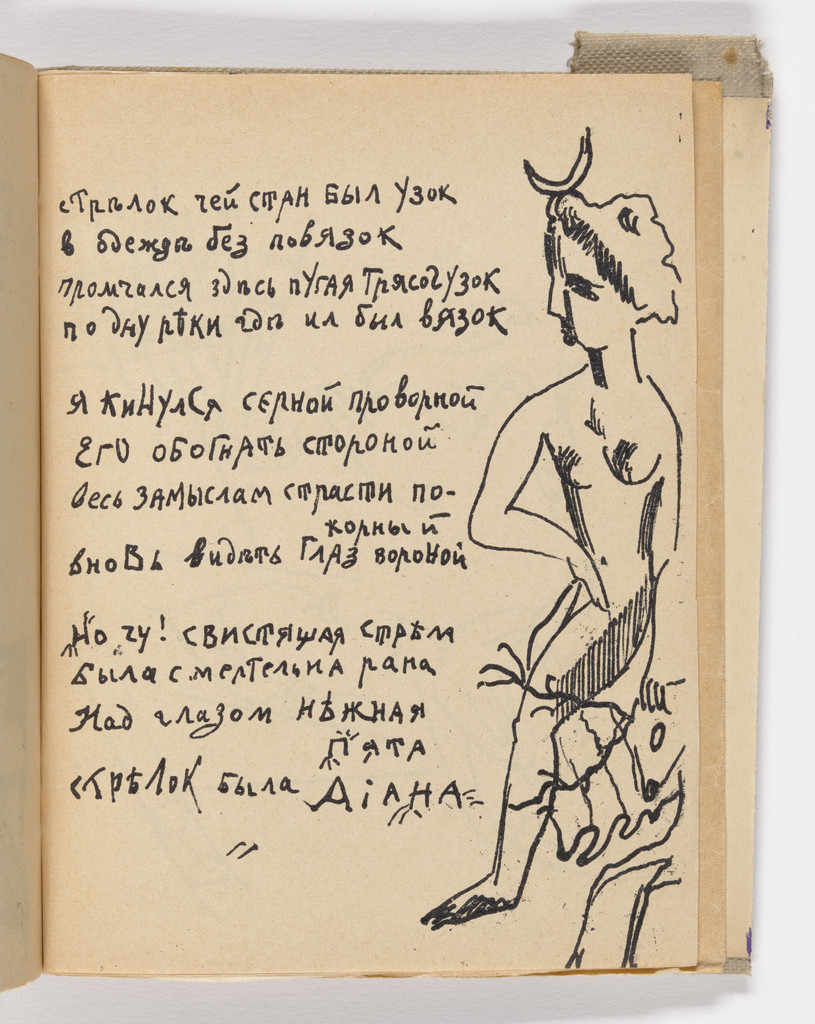 стрѣлок чей стан был узок
в одеждѣ без повязок
промчался здѣсь пугая трясогузок
по дну рѣки гдѣ ил был вязок
я кинулся серной проворной
Его обогнать стороной
весь замыслам страсти по-
корный
вновь видѣть глаз вороной
Но чу! свистящая стрѣла
была смертельна рана
Над глазом нѣжная
пята
стрѣлок была Діана